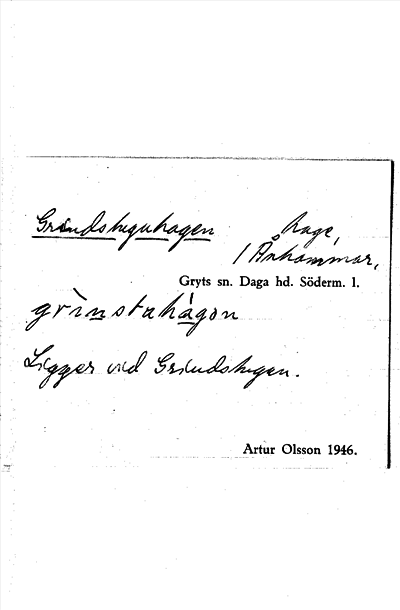 Grindstuguhagen hage,
/ Ånhammar,
Gryts sn. Daga hd. Söderm. l.
grìnstahágon
Ligger vid Grindstugan.
Artur Olsson 1946.